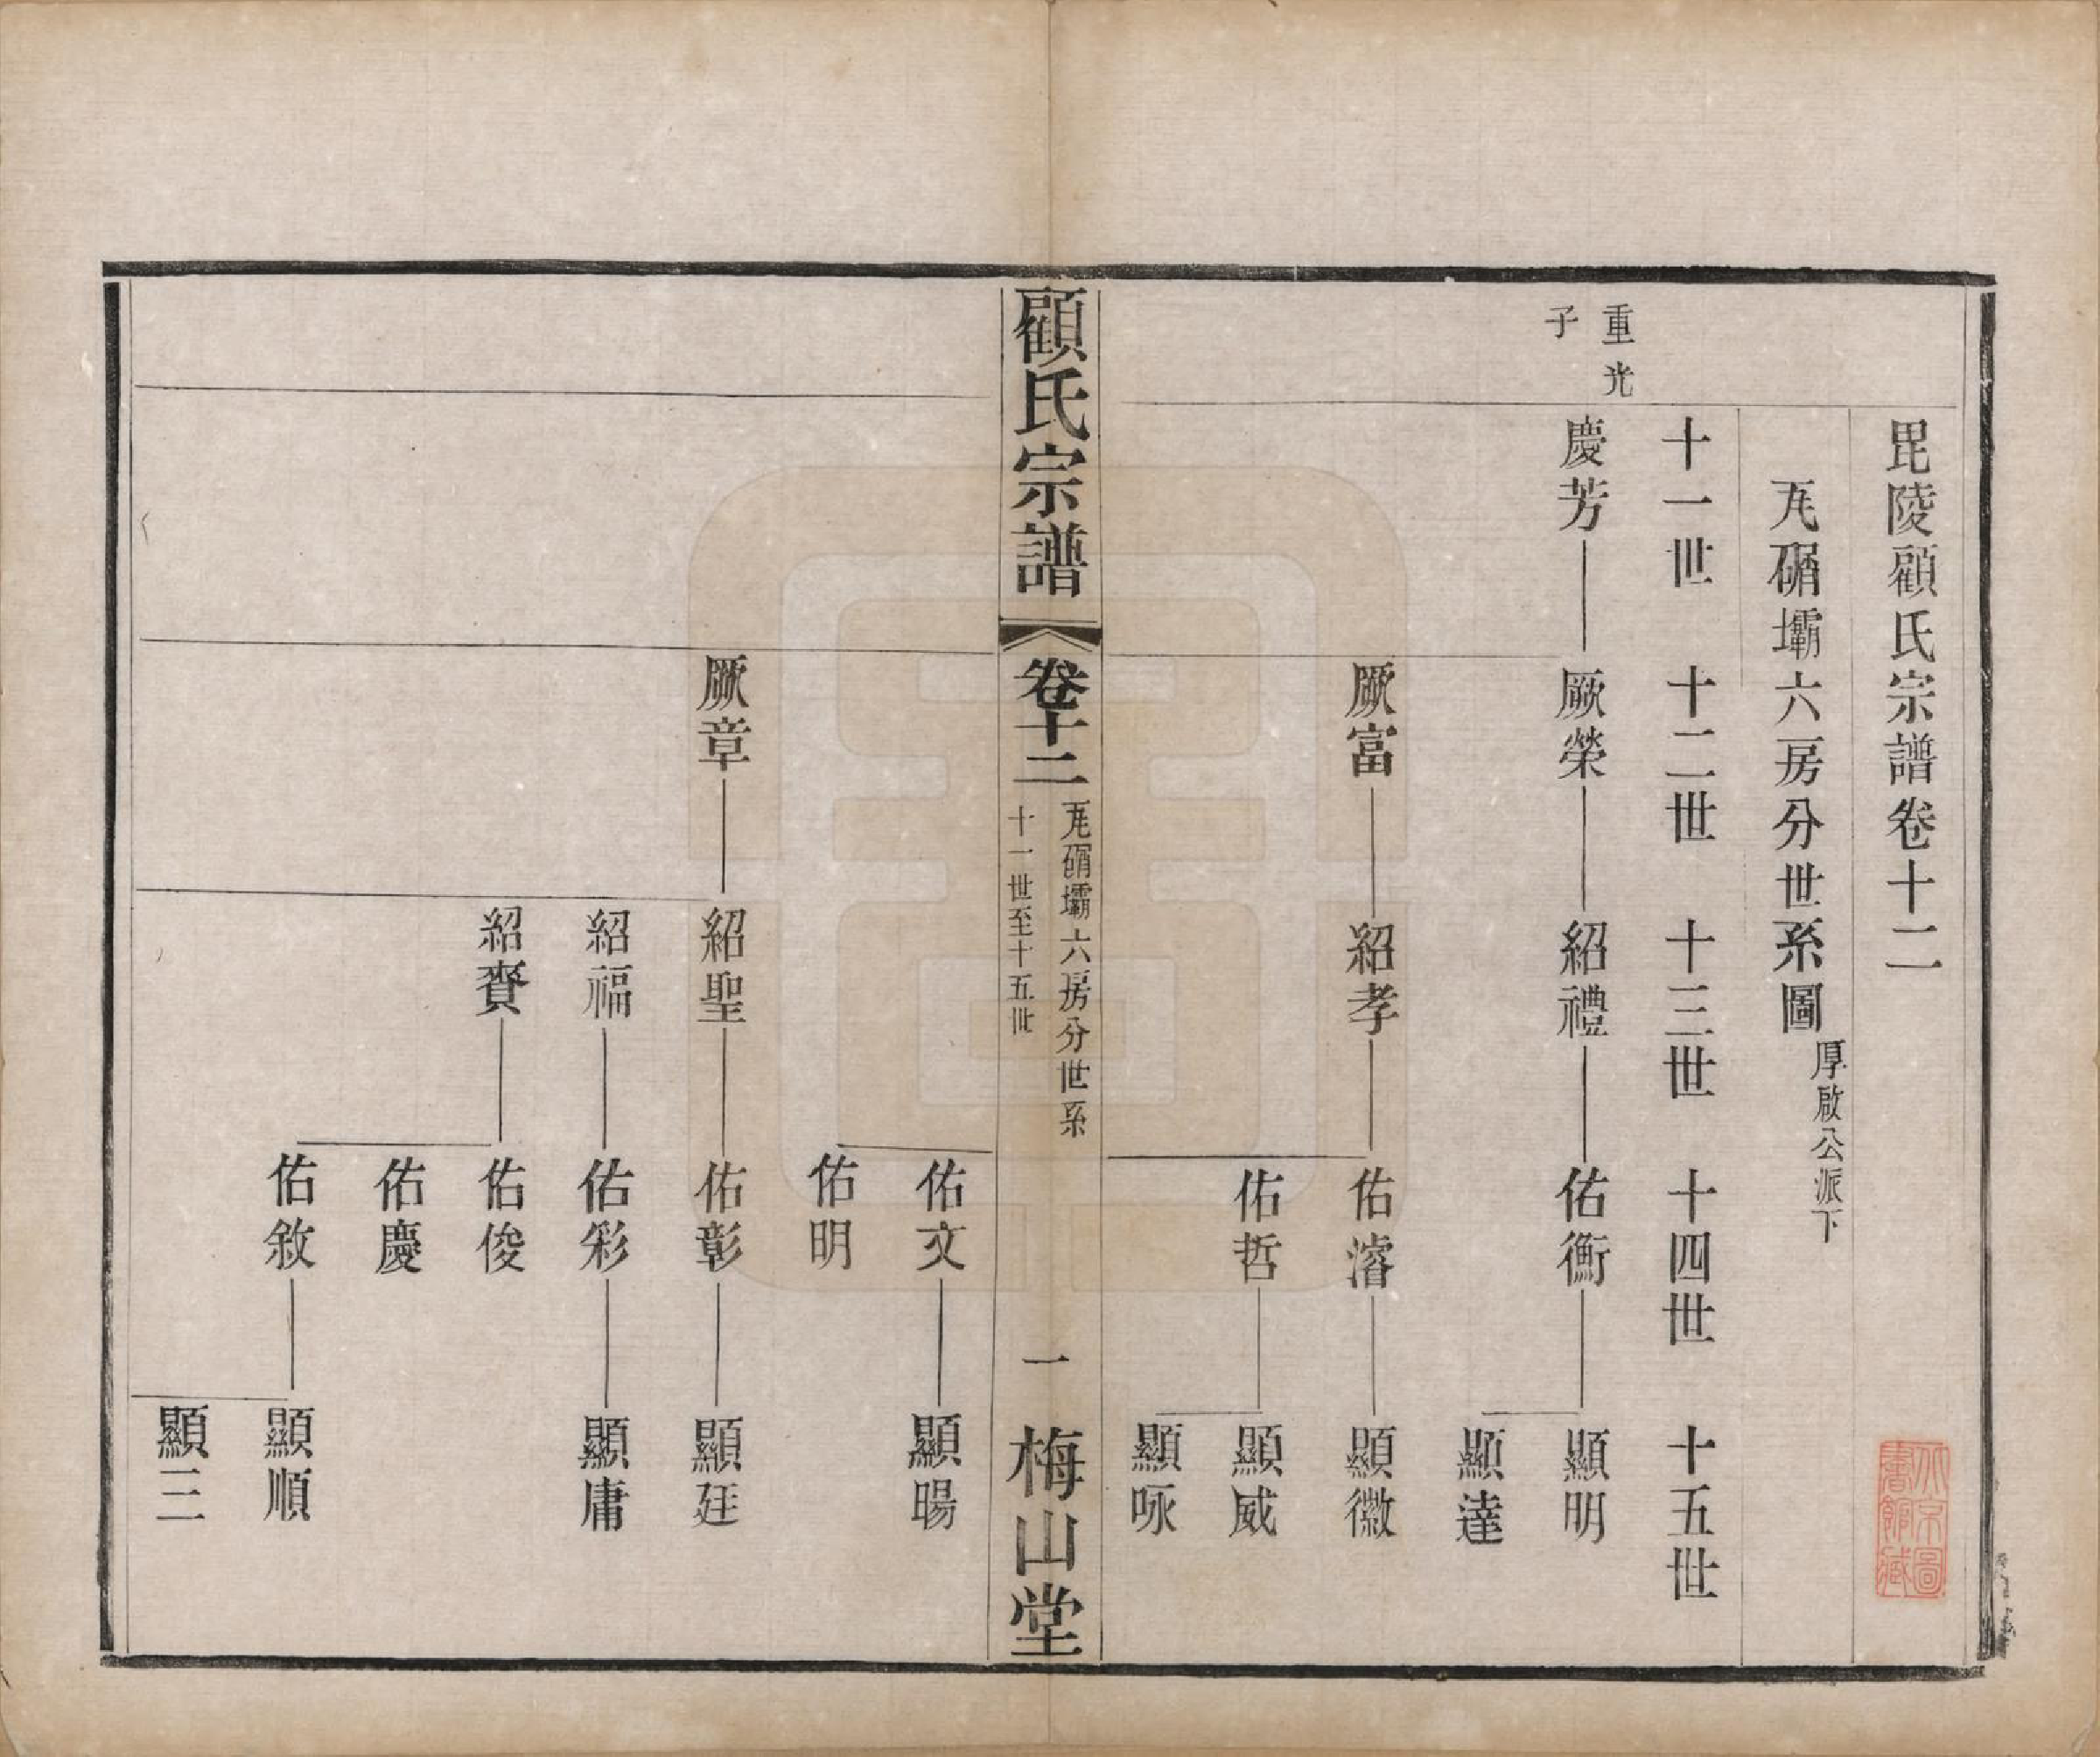 毘陵顧氏宗譜卷十二
壩六房分世系圖
厚啟公派下
十一世 十二世 十三世 十四世 十五世
重光子
慶芳 厥榮 紹禮 佑衡 顯明
顯達
厥富 紹孝 佑濬 顯徽
佑哲 顯威
顯咏
顧氏宗譜 卷十二
壩六房分世系
十一世至十五世
一 梅山堂
佑文 顯暘
佑明
厥章 紹聖 佑彰 顯廷
紹福 佑彩 顯庸
紹賚 佑俊
佑慶
佑敘 顯順
顯三
北京圖書館藏